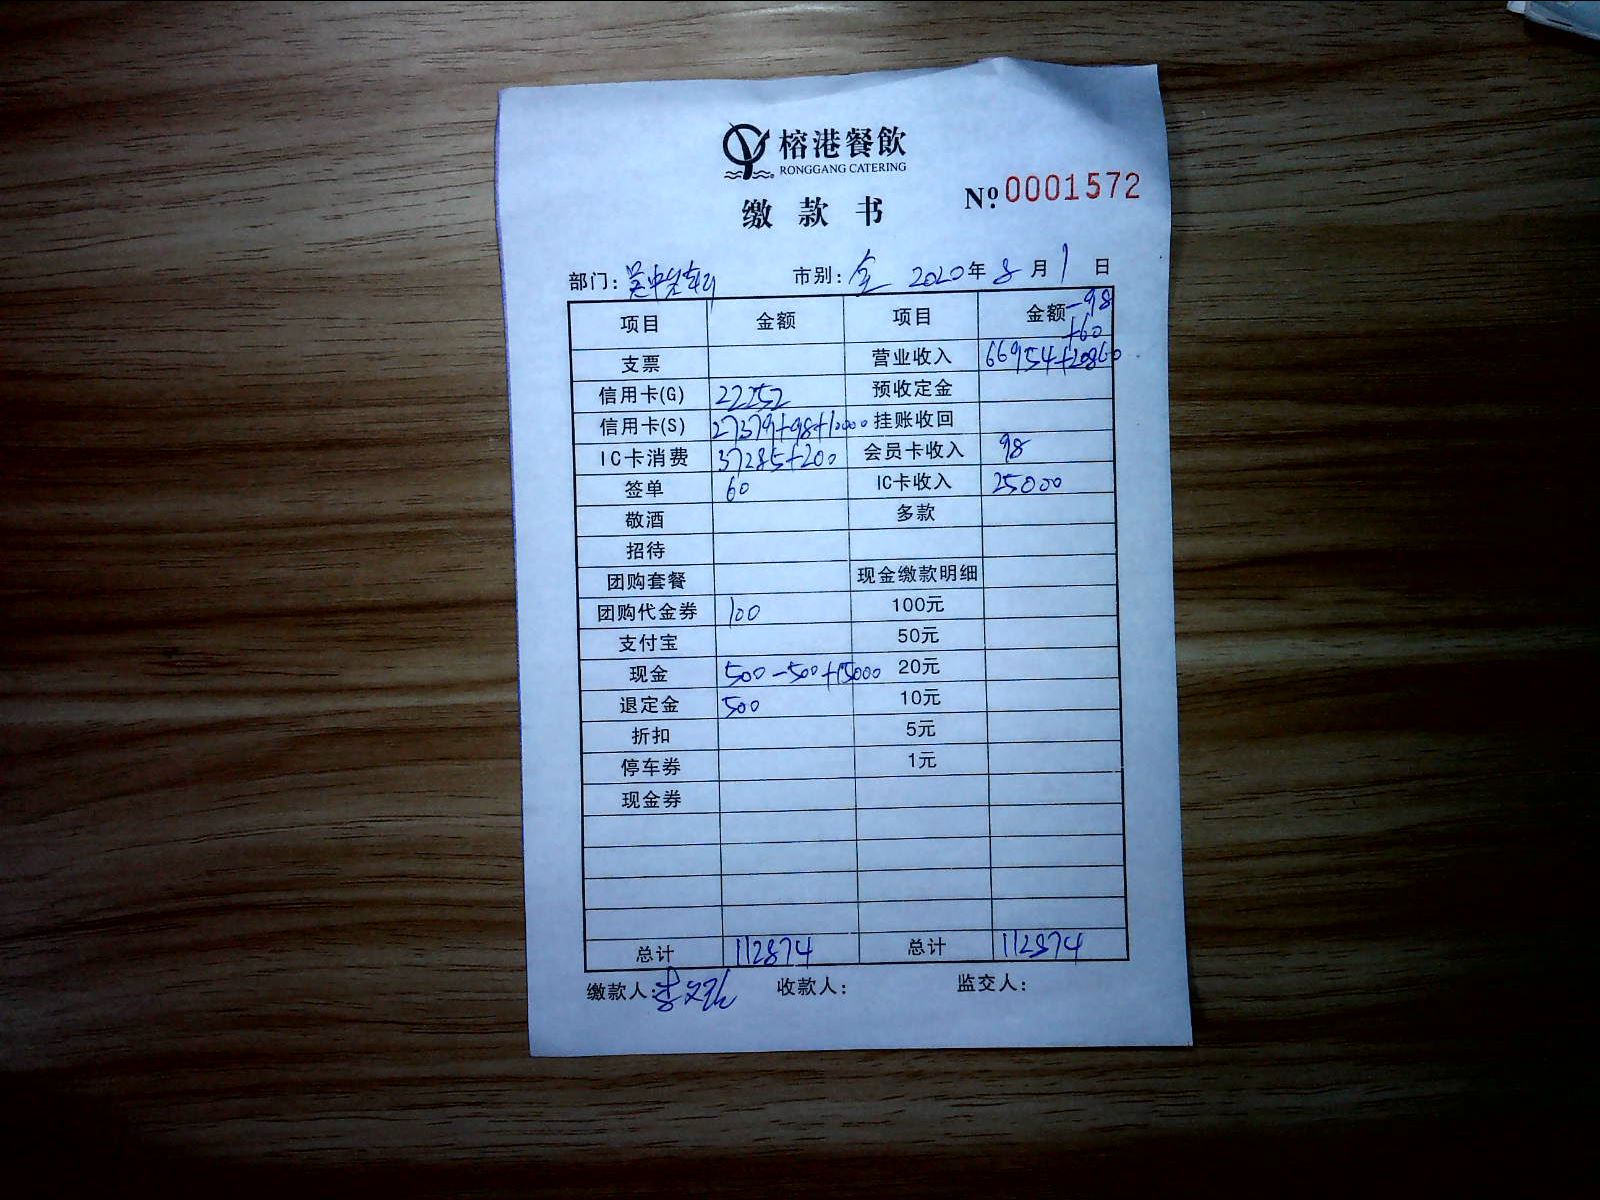 榕港餐飲
RONGGANG CATERING
缴款书
Nº:0001572
部门: 市别:全 2020年8月1日
项目 金额 项目 金额-98
+60
支票 营业收入 66954+20860
信用卡(G) 22252 预收定金
信用卡(S) 27379+98+10000 挂账收回
IC卡消费 37285+200 会员卡收入 98
签单 60 IC卡收入 25000
敬酒 多款
招待
团购套餐 现金缴款明细
团购代金券 100 100元
支付宝 50元
现金 500-500+15000 20元
退定金 500 10元
折扣 5元
停车券 1元
现金券
总计 112874 总计 112874
缴款人: 收款人: 监交人: